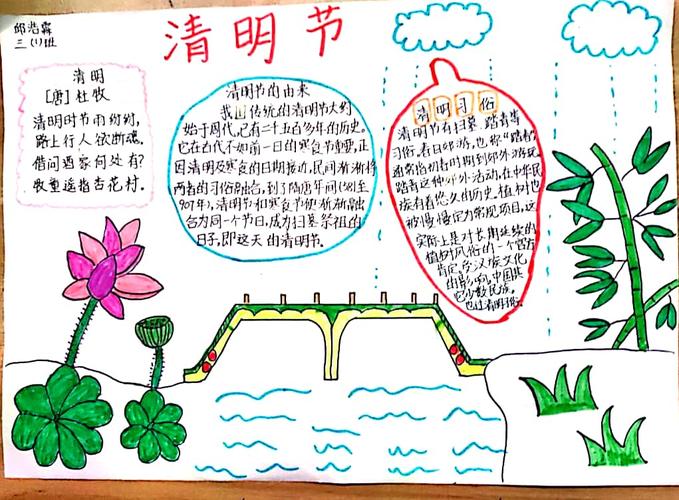 邱浩霖
三(1)班
清明节
清明
[唐] 杜牧
清明时节雨纷纷,
路上行人欲断魂。
借问酒家何处有?
牧童遥指杏花村。
清明节的由来
我国传统的清明节大约
始于周代,已有二千五百多年的历史。
它在古代不如前一日的寒食节重要,正
因清明及寒食的日期接近,民间渐渐将
两者的习俗融合,到了隋唐年间(581至
907年),清明节和寒食节便渐渐融
合为同一个节日,成为扫墓祭祖的
日子,即这天的清明节。
清明习俗
清明节有扫墓、踏青等
习俗。春日郊游,也称"踏青",
通常指初春时期到郊外游玩。
踏青这种野外活动,在中华民
族有着悠久的历史。植树也
被慢慢定为常规项目,这
实际上是对长期延续的
植树风俗的一个官方
肯定。受汉族文化
的影响,中国其
它少数民俗,
也过清明俗。